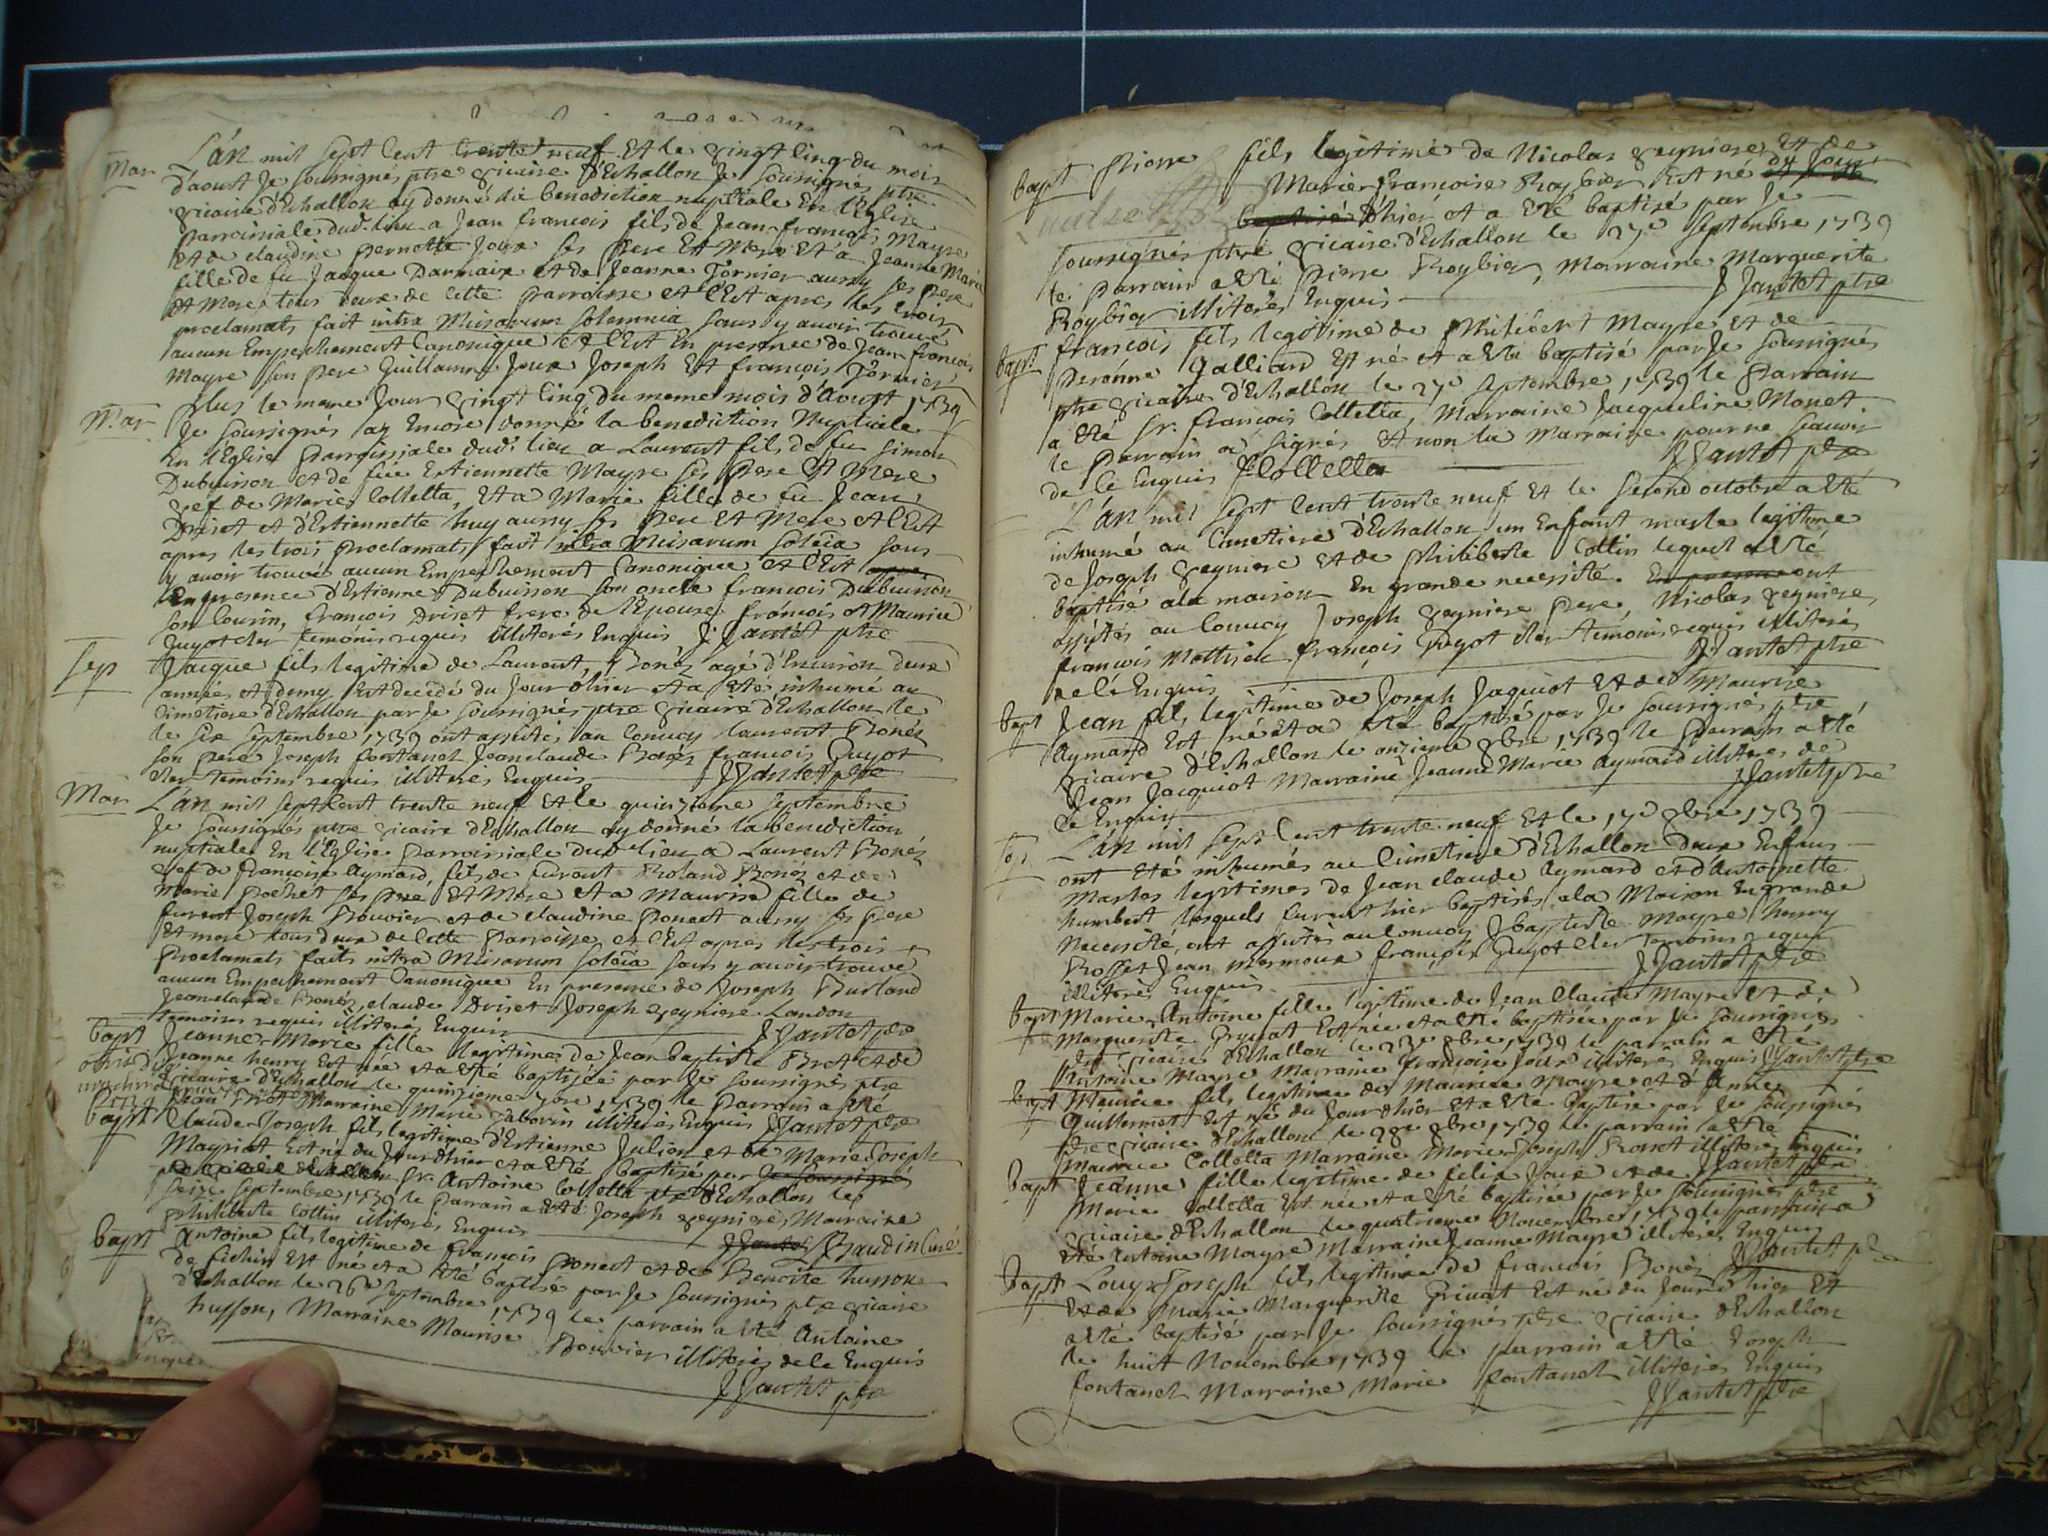 Mar L'an mil sept cent trente neuf et le vingt cinq du mois
d'aoust je soussignés ptre vicaire d'Echallon je soussignés ptre
vicaire d'Echallon ay donné la benediction nuptiale en l'Eglise
parroissiale dud. lieu a Jean francois fils de Jean-francois Mayre
et de claudine pernette Joux ses pere et mere et a Jeanne Marie
fille de fu Jacque Darmaix et de Jeanne Tornier aussy ses pere
et mere tous deux de cette parroisse et c'est apres les trois
proclamats fait intra Missarum solemnia sans y avoir trouvé
aucun Empeschement Canonique et c'est En presence de Jean-francois
Mayre son pere Guillaume Joux Joseph et francois Tornier
Mar plus le meme jour vingt cinq du meme mois d'Aoust 1739
je soussignés ay Encore donné la benediction Nuptiale
En l'Eglise parroissiale dud. lieu a Laurent fils de fu Simon
Dubuisson et de füe Estiennette Mayre ses pere et mere
vef de Marie Colletta, et a Marie fille de fu Jean
Driset et d'Estiennette huy aussy ses pere et mere et c'est
apres les trois proclamats fait intra Missarum solēia sans
y avoir trouvé aucun Empeschement Canonique et c'est
En presence d'Estienne Dubuisson son oncle francois Dubuisson
son Cousin, francois Driset frere de l'Epouse francois et Maurice
Guyot cler temoins requis illiterés Enquis J Jantet ptre
Sep Jacque fils legitime de Laurent Bonés agé d'Environ deux
années et demy Est decedé du jour d'hier et a eté inhumé au
cimetiere d'Echallon par je soussignés ptre vicaire d'Echallon le
le six Septembre 1739 ont assistés au convoy laurent Bonés
son pere Joseph fontanel Jeanclaude Bonés francois Guyot
cler temoins requis illiterés Enquis J Jantet ptre
Mar L'an mil sept cent trente neuf et le quinzieme septembre
je soussignés ptre vicaire d'Echallon ay donné la benediction
nuptiale En l'Eglise parroissiale dud. lieu a Laurent Bonés
vef de francoise Aymard, fils de furent Roland Bonés et de
Marie pochet ses pere et Mere et a Maurise fille de
furent Joseph Bouvier et de claudine Ponest aussy ses pere
et mere tous deux de cette parroisse et c'est apres les trois
Proclamats faits intra Missarum solēia sans y avoir trouvé
aucun Empeschement Canonique En presence de Joseph Burland
Jeanclaude Bonés, claude Driset Joseph veyniere Landon
temoins requis illiterés Enquis J Jantet ptre
bapt Jeanne-Marie fille legitime de Jean baptiste Brot et de
Jeanne henry est née et a eté baptisée par je soussignés ptre
vicaire d'Echallon le quinzieme 7bre 1739 le parrain a eté
Jean Brot Marraine Marie Laborin illiterés Enquis J Jantet ptre
bapt Claude-Joseph fils legitime d'Estienne Julien et de Marie Joseph
Mayriat est né du jour d'hier et a eté baptisé par
Sr. Antoine Colletta ptre d'Echallon le
seize Septembre 1739 le parrain a eté Joseph veyniere, Marraine
philiberte Cottin illiterés Enquis Baudin Curé
bapt Antoine fils legitime de francois Ponest et de Benoite husson
de sichin Est né et a eté baptisé par je soussignés ptre vicaire
d'Echallon le 26e Septembre 1739 le parrain a eté Antoine
husson, Marraine Maurise Bouvier illiterés de ce Enquis
J Jantet ptre
bapt Pierre fils legitime de Nicolas veyniere, et de
Marie francoise Roybier Est né
d'hier et a eté baptisé par je
soussignés ptre vicaire d'Echallon le 27e Septembre 1739
le parrain a eté pierre Roybier, Marraine Marguerite
Roybier illiterés Enquis J Jantet ptre
bapt. francois fils legitime de philibert Mayre et de
peronne Galliard Est né et a eté baptisé par je soussignés
ptre vicaire d'Echallon le 27e Septembre 1739 le parrain
a eté Sr. francois Colletta, Marraine Jacqueline Monet.
le parrain a signés et non la Marraine pour ne scavoir
de ce Enquis f Colletta J Jantet ptre
L'an mil sept cent trente neuf et le second octobre a eté
inhumé au cimetiere d'Echallon un Enfant masle legitime
de Joseph veyniere et de philiberte Cottin lequel a eté
baptisé a la maison En grande necessité. ont
assistés au convoy Joseph veyniere pere, Nicolas veyniere,
francois Mathieu francois Guyot cler temoins requis illiterés
de ce Enquis J Jantet ptre
bapt Jean fils legitime de Joseph Jaquiot et de Maurise
Aymard Est né et a eté baptisé par je soussignés ptre
vicaire d'Echallon le onzieme 8bre 1739 le parrain a eté
Jean Jacquiot Marraine Jeanne Marie Aymard illiterés de
ce Enquis J Jantet ptre
Sep L'an mil sept cent trente neuf et le 17e 8bre 1739
ont eté inhumés au cimetiere d'Echallon deux Enfans
masles legitimes de Jean claude Aymard et d'Antoinette
humbert lesquels furent hier baptisés a la Maison En grande
Necessité, ont assistés au convoy J baptiste Mayre henry
Rosset Jean Mermoux francois Guyot cler temoins requis
illiterés Enquis J Jantet ptre
bapt Marie-Antoine fille legitime de Jean Claude Mayre et de
Marguerite Groscat Est née et a eté baptisée par je soussignés
ptre vicaire d'Echallon le 23e 8bre 1739 le parrain a eté
Antoine Mayre Marraine francoise Joux illiterés Enquis J Jantet ptre
bapt Maurice fils legitime de Maurice Mayre et d'Anne
Guillermet Est né du jour d'hier et a eté baptisé par je soussignés
ptre vicaire d'Echallon le 28e 8bre 1739 le parrain a eté
Maurice Colletta Marraine Marie-Joseph Ponest illiterés Enquis
bapt Jeanne fille legitime de felix Joux et de J Jantet ptre
Marie Colletta Est née et a eté baptisée par je soussignés ptre
vicaire d'Echallon le quatrieme Novembre 1739 le parrain a
eté Antoine Mayre Marraine Jeanne Mayre illiterés Enquis
J Jantet ptre
bapt Louys Joseph fils legitime de francois Bonés
et de Marie Marguerite Privat Est né du jour d'hier et
a eté baptisé par je soussignés ptre vicaire d'Echallon
le huit Novembre 1739 le parrain a eté Joseph
fontanel Marraine Marie fontanel illiterés Enquis
J Jantet ptre